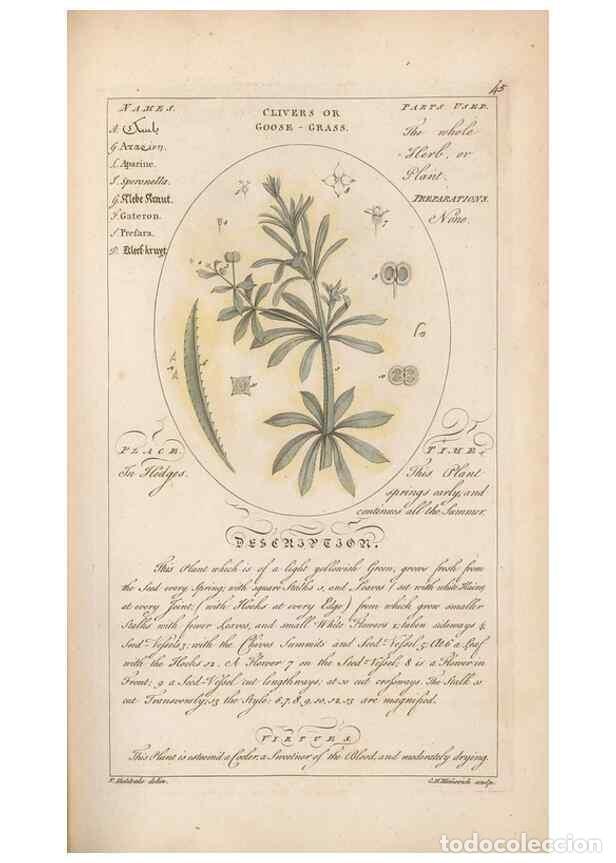 45
NAMES.
A.
G. Απαρίνη.
L. Aparine.
I. Speronella.
G. Klebe Kraut.
F. Gateron.
S. Presara.
D. Kleef-kruyt.
CLIVERS OR
GOOSE-GRASS.
PARTS USED.
The whole
Herb, or
Plant.
PREPARATIONS.
None.
PLACE.
In Hedges.
TIME.
This Plant
springs early, and
continues all the Summer.
DESCRIPTION.
This Plant which is of a light yellowish Green, grows fresh from
the Seed every Spring, with square Stalks 1, and Leaves (set with white Hairs
at every Joint; (with Hooks at every Edge) from which grow smaller
Stalks with fewer Leaves, and small White Flowers 4; taken sideways 4;
Seed-Vessels 3; with the Cheves Summits and Seed-Vessel 5; At 6 a Leaf
with the Hooks 12. A Flower 7 on the Seed-Vessel; 8 is a Flower in
Front; 9 a Seed-Vessel cut lengthways; at 10 cut crossways. The Stalk 11
cut Transversly; 13 the Style; 6, 7, 8, 9, 10, 12, 13 are magnified.
VIRTUES.
This Plant is esteem'd a Cooler, a Sweetner of the Blood, and moderately drying.
T. Sheldrake delin.
C. H. Hemerich sculp.
todocoleccion